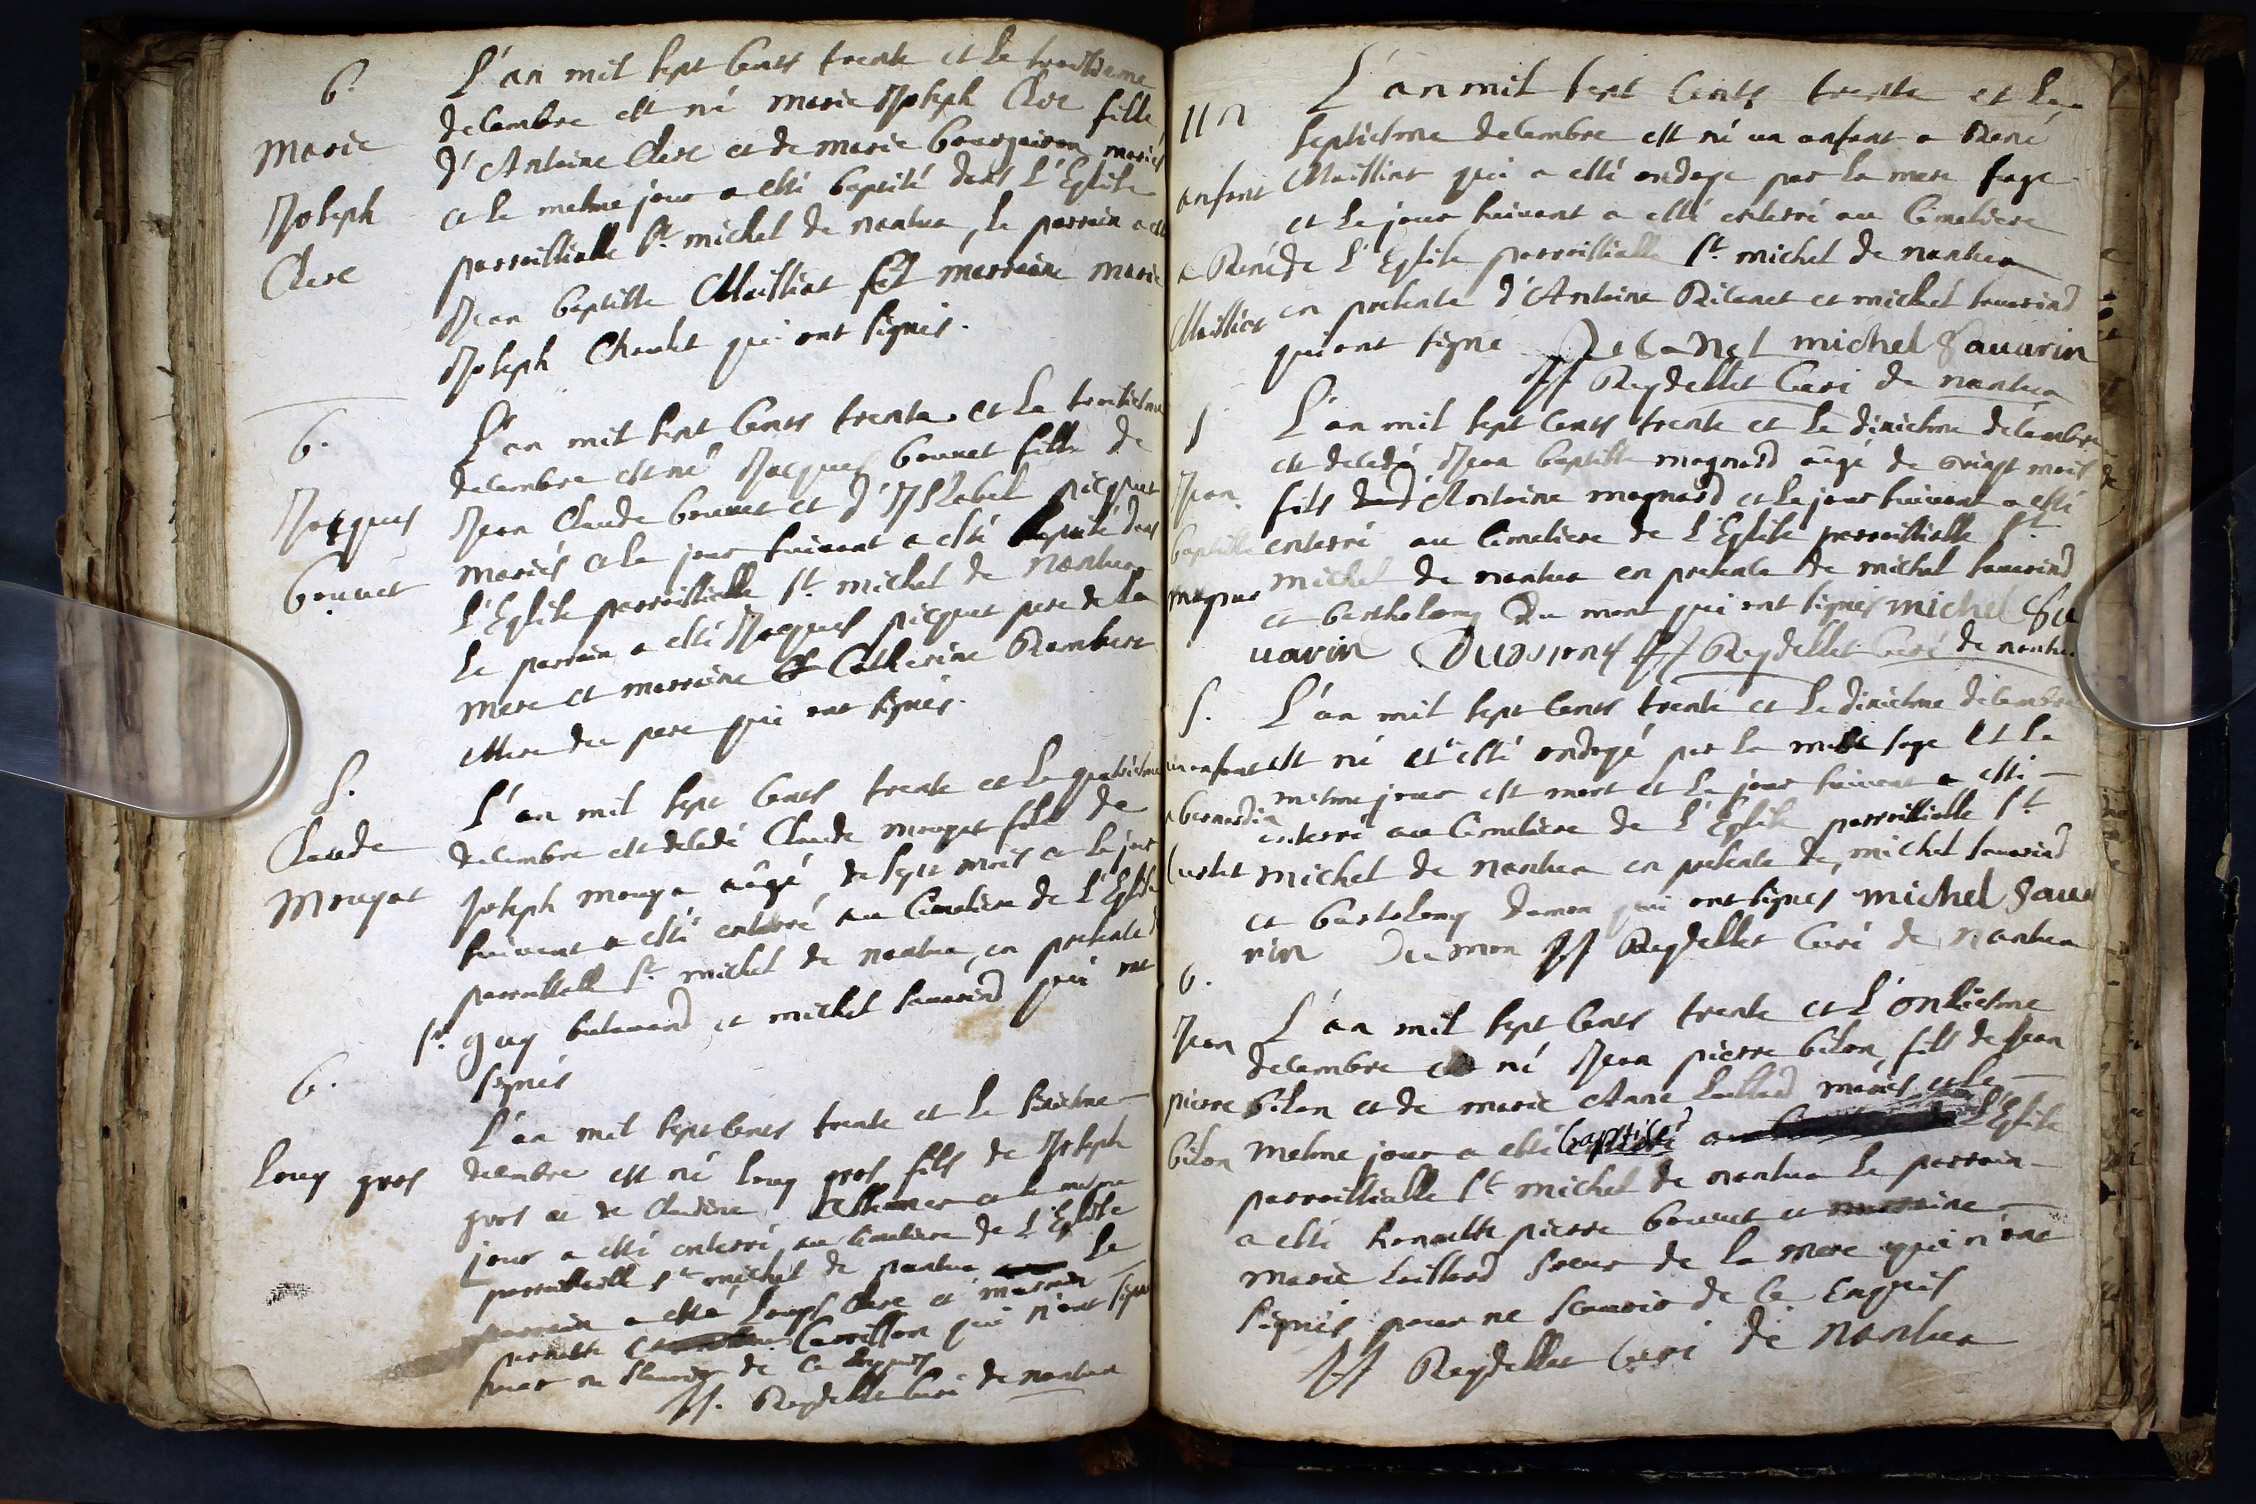 b.
Marie
Joseph
Clerc
L'an mil sept cents trente et le troisieme
decembre est né marie Joseph Clerc fille
d'Antoine Clerc et de marie bourguison mariés
et le mesme jour a esté baptisé dans l'Eglise
parroissialle st michel de nantua, le parrain a esté
Jean baptiste Maissiat et marraine marie
Joseph Choulet qui ont signés.
b.
Jacques
bouuet
L'an mil sept cents trente et le troisiesme
decembre est né Jacques bouuet fille de
Jean Claude bouuet et d'ISabel picquet
mariés et le jour suiuant a esté baptisé dans
l'Eglise parroissialle st michel de nantua
le parrain a esté Jacques picquet pere de la
mere et marraine Catherine Rambert
Mere du pere qui ont signés.
S.
Claude
Mougat
L'an mil sept cents trente et le quatriesme
decembre est decedé Claude mougat fils de
Joseph mouga aâgé de sept mois et le jour
suiuant a esté enterré au Cimetiere de l'Eglise
parroissiall st michel de nantua, en presence
sr. guy et michel sauarind qui ont
signés
b.
Louy gros
L'an mil sept cents trente et le sixiesme
decembre est né Louy gros fils de Joseph
gros et de Claudine et le mesme
jour a esté enterré au Cimetiere de l'Eglise
parroissiall st michel de nantua le
parrain a esté Louys Clerc et marraine
pernette Carrillon qui n'ont signé
pour ne scauoir de ce enquis
JJ. Reydellet Curé de nantua
un
enfant
a René
Maissiat
L'an mil sept cents trente et le
septiesme decembre est né un enfant a René
Maissiat qui a esté ondoye par la mere sage
et le jour suiuant a esté enterré au Cimetiere
de l'Eglise parroissialle st michel de nantua
en presence d'Antoine Ricanet et michel sauarind
qui ont signé Recanet michel Sauarin
JJ Reydellet Curé de nantua
S
Jean
baptiste
magnar
L'an mil sept cents trente et le dixiesme decembre
est decedé Jean baptiste magnard aâgé de vingt mois
fils d'Antoine magnard et le jour suiuant a esté
enterré au Cimetiere de l'Eglise parroissialle st
michel de nantua en presence de michel sauarind
et bartholomy Du mont qui ont signés michel Sa
uarin Dumont JJ Reydellet Curé de nantua
S.
un enfant
a bernardin
Curtet
L'an mil sept cents trente et le dixiesme decembre
est né et esté ondoyé par la mere sage et le
mesme jour est mort et le jour suiuant a esté
enterré au Cimetiere de l'Eglise parroissialle st
michel de nantua en presence de michel sauarind
et bartolomy dumon qui ont signés michel Saua
rin Dumon JJ Reydellet Curé de nantua
b.
Jean
pierre
bilon
L'an mil sept cents trente et l'onziesme
decembre est né Jean pierre bilon, fils de Jean
bilon et de marie Anne Laillard mariés et le
mesme jour a esté baptisé a l'Eglise
parroissialle st michel de nantua le parrain
a esté honneste pierre bouuet et marraine
marie Laillard soeur de la mere qui n'ont
signés pour ne scauoir de ce Enquis
JJ Reydellet Curé de Nantua